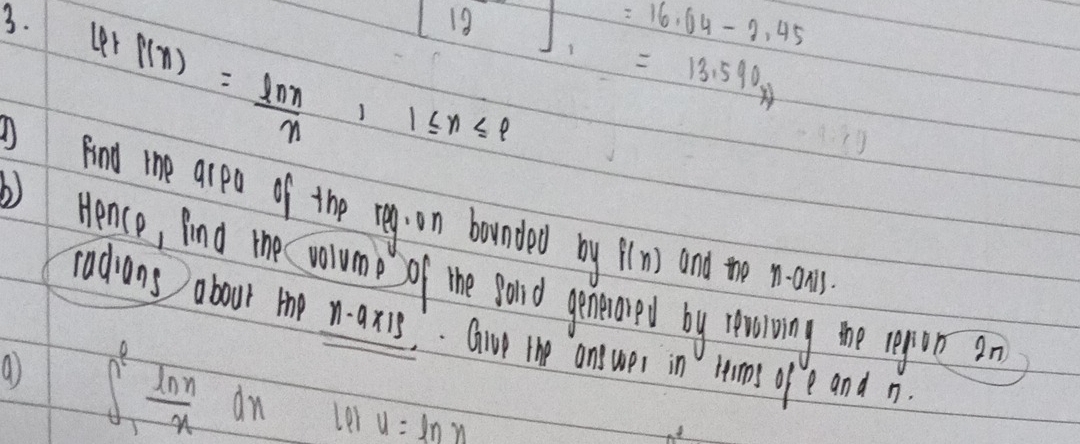 [ 12 ] 1
= 16.04 - 2.45
= 13.590
3. Let f(x) = ln x / x , 1 ≤ x ≤ e
a) Find the area of the region bounded by f(x) and the x-axis.
b) Hence, find the volume of the solid generated by revolving the region 2π
radians about the x-axis. Give the answer in terms of e and π.
a) ∫₁ᵉ ln x / x dx let u = ln x